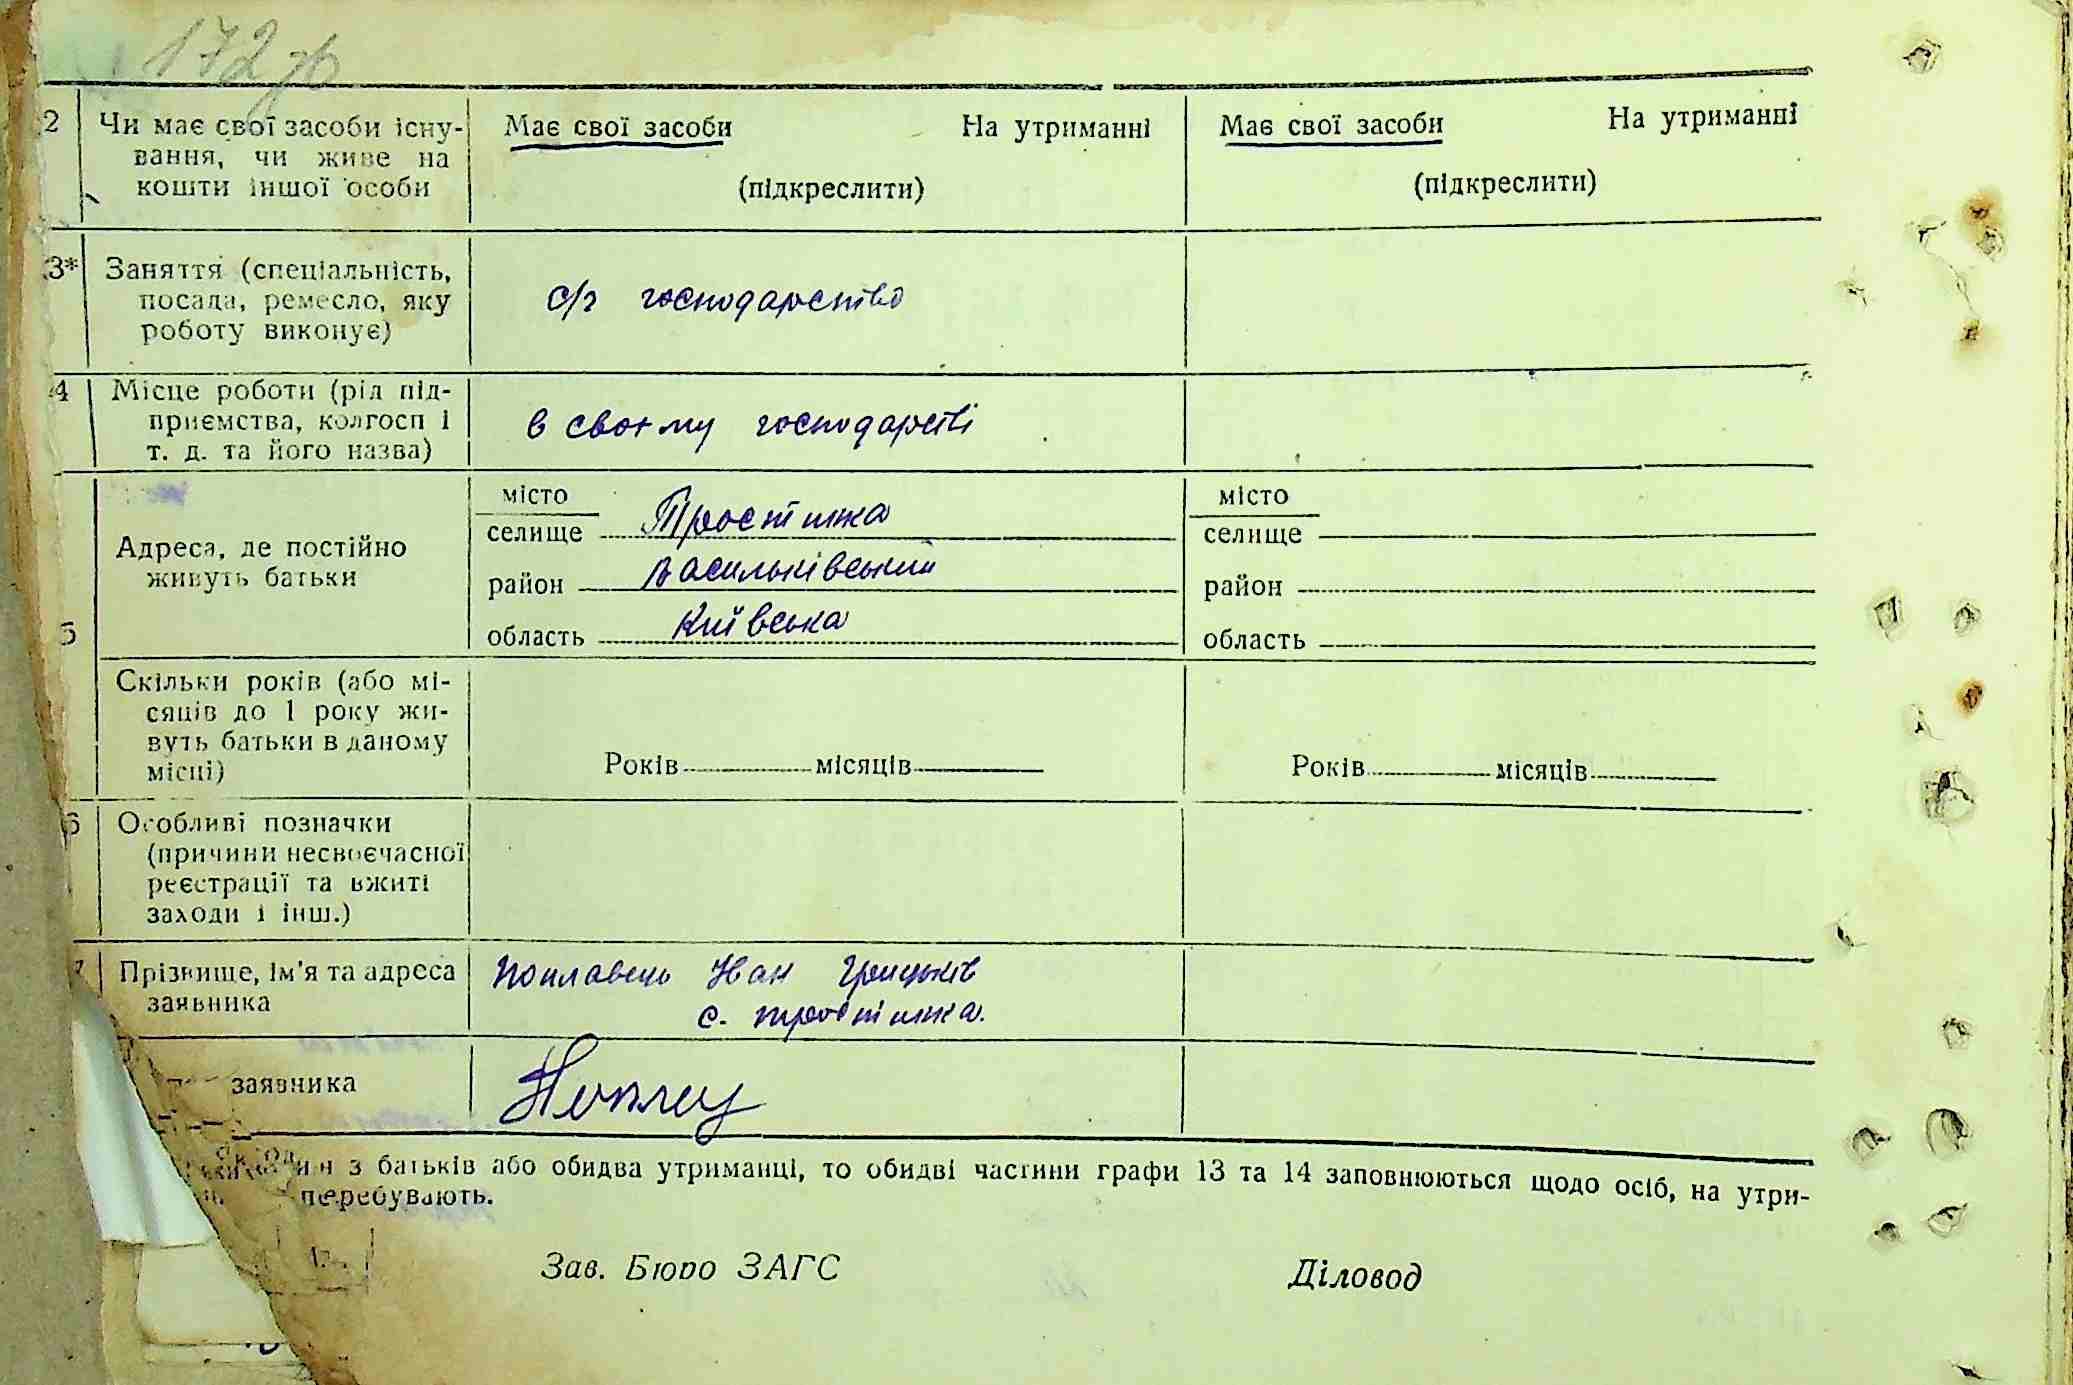 172 зв
2 Чи має свої засоби існу- Має свої засоби На утриманні Має свої засоби На утриманні
вання, чи живе на
кошти іншої особи (підкреслити) (підкреслити)
3* Заняття (спеціальність,
посада, ремесло, яку с/г господарство
роботу виконує)
4 Місце роботи (рід під-
приємства, колгосп і в своєму господарстві
т. д. та його назва)
місто місто
селище Тростинка селище
Адреса, де постійно
живуть батьки район Васильківський район
5 область Київська область
Скільки років (або мі-
сяців до 1 року жи-
вуть батьки в даному
місці) Років місяців Років місяців
6 Особливі позначки
(причини несвоєчасної
реєстрації та вжиті
заходи і інш.)
7 Прізвище, ім'я та адреса Поплавець Іван Грицьків
заявника с. Тростинка.
заявника
з батьків або обидва утриманці, то обидві частини графи 13 та 14 заповнюються щодо осіб, на утри-
перебувають.
Зав. Бюро ЗАГС Діловод